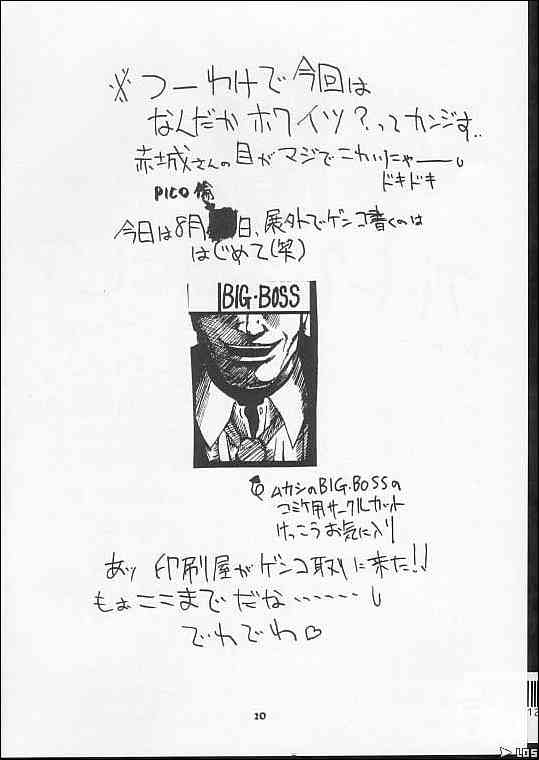 ※つーわけで今回は
なんだかホワイツ?ってカンジす..
赤城さんの目がマジでこわいにゃー
ドキドキ
PICO
今日は8月 日、屋外でゲンコ書くのは
はじめて(笑)
BIG・BOSS
ムカシのBIG・BOSSの
コミケ用サークルカット
けっこうお気に入り
あッ 印刷屋がゲンコ取りに来た!!
もぉここまでだな……
でわでわ♡
10